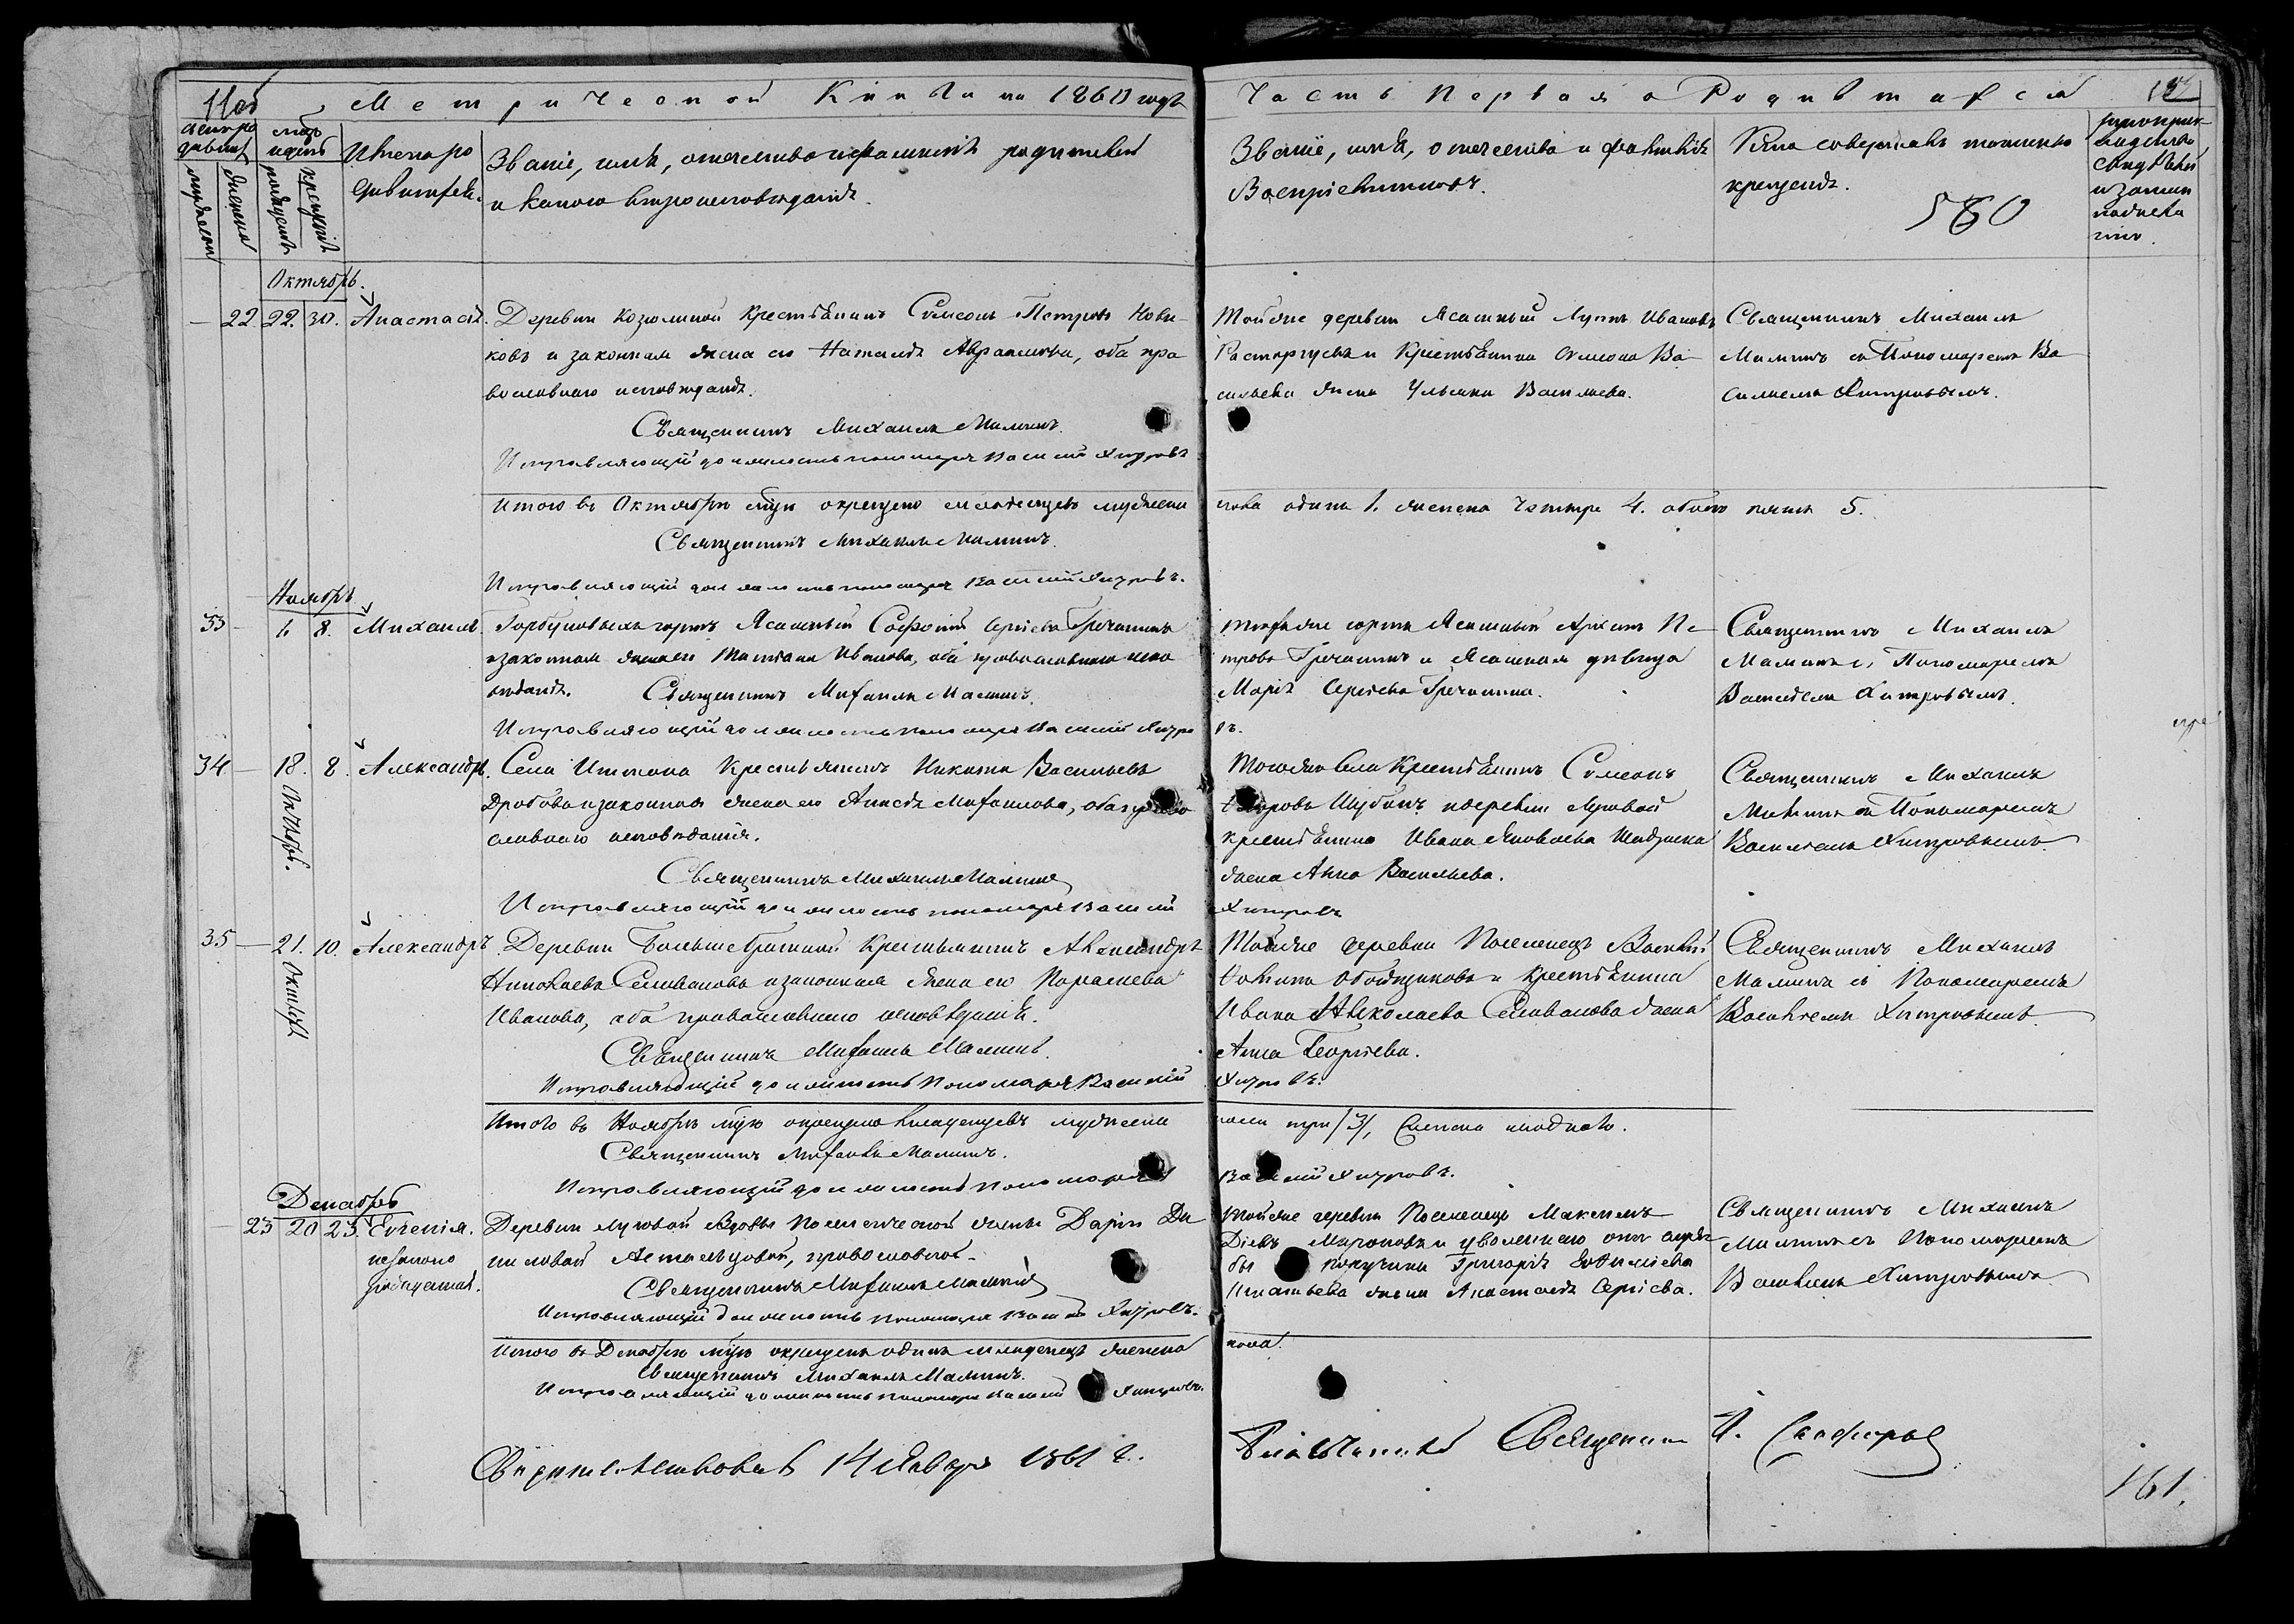 Метрической Книги на 1860 годъ
Часть Первая о Родившихся
Званіе, имя, отечество и фамилія родителей
и какого вѣроисповѣданія.
Званіе, имя, отчество и фамилія
Воспріемниковъ.
Кто совершалъ таинство
крещенія.
580
Октябрь.
22. 22. 30. Анастасія.
Деревни Козюлиной Крестьянинъ Симеонъ Петровъ Нови-
ковъ и законная жена его Наталія Авраамова, оба пра
вославнаго исповѣданія.
Священникъ Михаилъ Малинъ.
Исправляющій должность пономаря Василій Хитровъ
Тойже деревни Ясашный Лупъ Ивановъ
Расторгуевъ и Крестьянина Симеона Ва
сильева жена Ульяна Васильева.
Священникъ Михаилъ
Малинъ съ Пономаремъ Ва
силіемъ Хитровымъ.
Итого въ Октябрѣ мцѣ окрещено младенцевъ мужеска
пола одинъ 1. женска четыре 4. обоего пять 5.
Священникъ Михаилъ Малинъ.
Исправляющій должность пономаря Василій Хитровъ.
Ноябрь
33 1. 8. Михаилъ.
Горбуновыхъ юртъ Ясашный Софоній Сергіевъ Гречанинъ
и законная жена его Татіана Иванова, оба православнаго испо
вѣданія. Священникъ Михаилъ Малинъ.
Исправляющій должность пономаря Василій Хитро
въ.
Тѣхже юртъ Ясашный Архипъ Пе-
тровъ Гречанинъ и Ясашная дѣвица
Марія Сергіева Гречанина.
Священникъ Михаилъ
Малинъ съ Пономаремъ
Василіемъ Хитровымъ.
34 18. 8. Александръ.
Октябрь.
Села Иткина Крестьянинъ Никита Васильевъ
Дробовъ и законная жена его Анисія Михаилова, оба право
славнаго исповѣданія.
Священникъ Михаилъ Малинъ
Исправляющій должность пономаря Василій
Хитровъ
Тогоже Села Крестьянинъ Симеонъ
Шубинъ и деревни Луговой
крестьянина Ивана Яковлева
жена Анна Васильева.
Священникъ Михаилъ
Малинъ съ Пономаремъ
Василіемъ Хитровымъ
35 21. 10. Александръ
Октября
Деревни Большебрагиной Крестьянинъ Александръ
Николаевъ Селивановъ и законная жена его Параскева
Иванова, оба православнаго исповѣданія.
Священникъ Михаилъ Малинъ.
Исправляющій должность Пономаря Василій
Хитровъ.
Тойже деревни Поселенецъ Василій
и Крестьянина
Ивана Николаева Селиванова жена
Анна Георгіева.
Священникъ Михаилъ
Малинъ съ Пономаремъ
Василіемъ Хитровымъ
Итого въ Ноябрѣ мцѣ окрещено младенцевъ мужеска
пола три /3/, женска ниодного.
Священникъ Михаилъ Малинъ.
Исправляющій должность пономаря
Василій Хитровъ.
Декабрь
23 20 23. Евгенія.
незаконо
рожденная.
Деревни Луговой Вдовы Поселенческой жены Даріи Да
ниловой православной.
Священникъ Михаилъ Малинъ
Исправляющій должность пономаря Василій Хитровъ.
Тойже деревни Поселенецъ Максимъ
Мироновъ и уволеннаго отъ служ
бы Григорія Евфиміева
Игнатьева жена Анастасія Сергіева.
Священникъ Михаилъ
Малинъ съ Пономаремъ
Василіемъ Хитровымъ
Итого въ Декабрѣ мцѣ окрещенъ одинъ младенецъ женска
пола.
Священникъ Михаилъ Малинъ.
Исправляющій должность пономаря Василій Хитровъ.
Свидѣтельствовалъ 14 Января 1861 г.
Благочинный Священникъ
161.